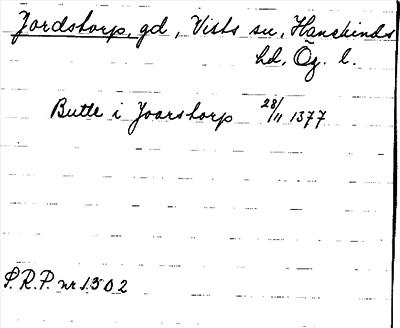 Jordstorp, gd, Vists sn, Hanekinds
hd, Ög. l.
Butte i Joarstorp 28/11 1377
S.R.P. nr 1302